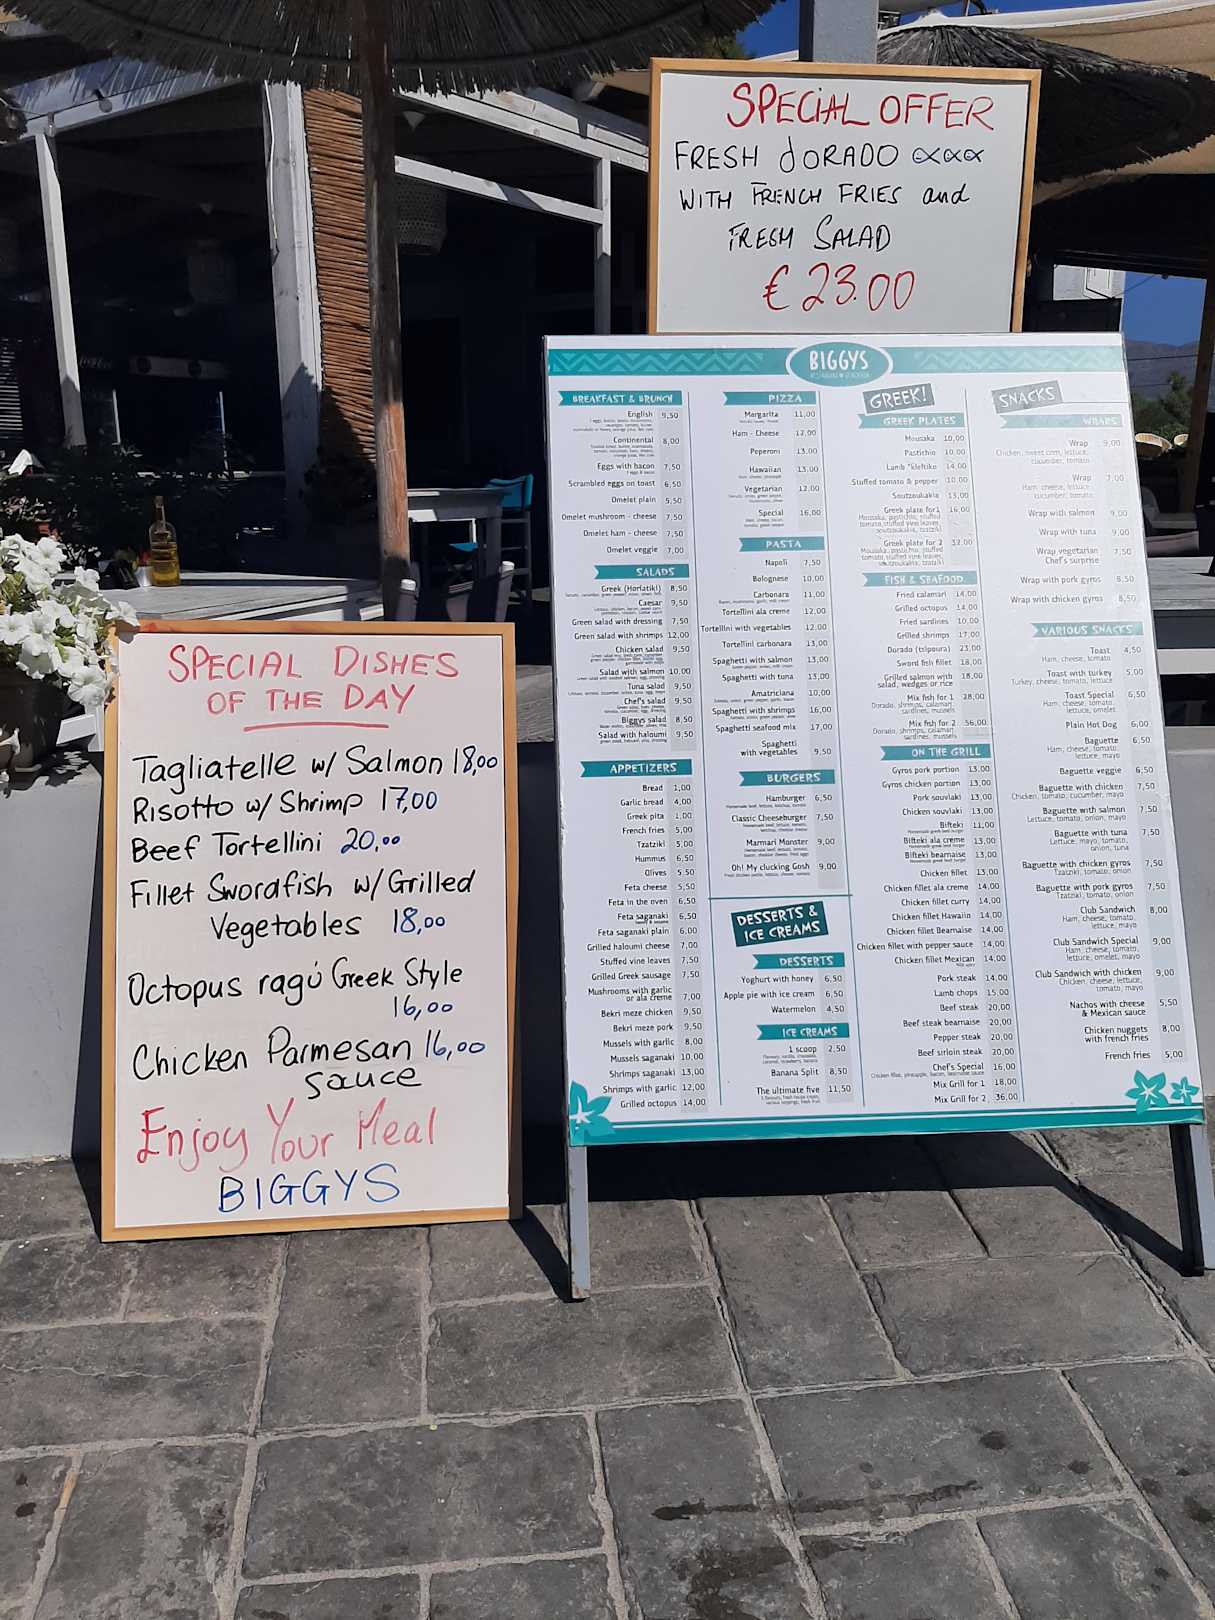 SPECIAL OFFER
FRESH dORADO
WITH FRENCH FRIES and
FRESH SALAD
€ 23.00
SPECIAL DISHES
OF THE DAY
Tagliatelle w/ Salmon 18,00
Risotto w/ Shrimp 17,00
Beef Tortellini 20,00
Fillet Swordfish w/ Grilled
Vegetables 18,00
Octopus ragú Greek Style
16,00
Chicken Parmesan 16,00
sauce
Enjoy Your Meal
BIGGYS
BIGGYS
BREAKFAST & BRUNCH
English 9,50
Continental 8,00
Eggs with bacon 7,50
Scrambled eggs on toast 6,50
Omelet plain 5,50
Omelet mushroom - cheese 7,50
Omelet ham - cheese 7,50
Omelet veggie 7,00
SALADS
Greek (Horiatiki) 8,50
Caesar 9,50
Green salad with dressing 7,50
Green salad with shrimps 12,00
Chicken salad 9,50
Salad with salmon 10,00
Tuna salad 9,50
Chef's salad 9,50
Biggys salad 8,50
Salad with haloumi 9,50
APPETIZERS
Bread 1,00
Garlic bread 4,00
Greek pita 1,00
French fries 5,00
Tzatziki 5,00
Hummus 6,50
Olives 5,50
Feta cheese 5,50
Feta in the oven 6,50
Feta saganaki 6,50
Feta saganaki plain 6,00
Grilled haloumi cheese 7,00
Stuffed vine leaves 7,50
Grilled Greek sausage 7,50
Mushrooms with garlic
or ala creme 7,00
Bekri meze chicken 9,50
Bekri meze pork 9,50
Mussels with garlic 8,00
Mussels saganaki 10,00
Shrimps saganaki 13,00
Shrimps with garlic 12,00
Grilled octopus 14,00
PIZZA
Margarita 11,00
Ham - Cheese 12,00
Peperoni 13,00
Hawaiian 13,00
Vegetarian 12,00
Special 16,00
PASTA
Napoli 7,50
Bolognese 10,00
Carbonara 11,00
Tortellini ala creme 12,00
Tortellini with vegetables 12,00
Tortellini carbonara 13,00
Spaghetti with salmon 13,00
Spaghetti with tuna 13,00
Amatriciana 10,00
Spaghetti with shrimps 16,00
Spaghetti seafood mix 17,00
Spaghetti
with vegetables 9,50
BURGERS
Hamburger 6,50
Classic Cheeseburger 7,50
Marmari Monster 9,00
Oh! My clucking Gosh 9,00
DESSERTS &
ICE CREAMS
DESSERTS
Yoghurt with honey 6,50
Apple pie with ice cream 6,50
Watermelon 4,50
ICE CREAMS
1 scoop 2,50
Banana Split 8,50
The ultimate five 11,50
GREEK!
GREEK PLATES
Mousaka 10,00
Pastichio 10,00
Lamb "kleftiko 14,00
Stuffed tomato & pepper 10,00
Soutzoukakia 13,00
Greek plate for1 16,00
Greek plate for 2 32,00
FISH & SEAFOOD
Fried calamari 14,00
Grilled octopus 14,00
Fried sardines 10,00
Grilled shrimps 17,00
Dorado (tsipoura) 23,00
Sword fish fillet 18,00
Grilled salmon with
salad, wedges or rice 18,00
Mix fish for 1 28,00
Dorado, shrimps, calamari
sardines, mussels
Mix fish for 2 56,00
Dorado, shrimps, calamari
sardines, mussels
ON THE GRILL
Gyros pork portion 13,00
Gyros chicken portion 13,00
Pork souvlaki 13,00
Chicken souvlaki 13,00
Bifteki 11,00
Bifteki ala creme 13,00
Bifteki bearnaise 13,00
Chicken fillet 13,00
Chicken fillet ala creme 14,00
Chicken fillet curry 14,00
Chicken fillet Hawaiin 14,00
Chicken fillet Bearnaise 14,00
Chicken fillet with pepper sauce 14,00
Chicken fillet Mexican 14,00
Pork steak 14,00
Lamb chops 15,00
Beef steak 20,00
Beef steak bearnaise 20,00
Pepper steak 20,00
Beef sirloin steak 20,00
Chef's Special 16,00
Mix Grill for 1 18,00
Mix Grill for 2 36,00
SNACKS
WRAPS
Wrap 9,00
Chicken, sweet corn, lettuce,
cucumber, tomato
Wrap 7,00
Ham, cheese, lettuce
cucumber, tomato
Wrap with salmon 9,00
Wrap with tuna 9,00
Wrap vegetarian 7,50
Chef's surprise
Wrap with pork gyros 8,50
Wrap with chicken gyros 8,50
VARIOUS SNACKS
Toast 4,50
Ham, cheese, tomato
Toast with turkey 5,00
Turkey, cheese, tomato, lettuce
Toast Special 6,50
Ham, cheese, tomato,
lettuce, omelet
Plain Hot Dog 6,00
Baguette 6,50
Ham, cheese, tomato,
lettuce, mayo
Baguette veggie 6,50
Baguette with chicken 7,50
Chicken, tomato, cucumber, mayo
Baguette with salmon 7,50
Lettuce, tomato, onion, mayo
Baguette with tuna 7,50
Lettuce, mayo, tomato,
onion, tuna
Baguette with chicken gyros 7,50
Tzatziki, tomato, onion
Baguette with pork gyros 7,50
Tzatziki, tomato, onion
Club Sandwich 8,00
Ham, cheese, tomato,
lettuce, mayo
Club Sandwich Special 9,00
Ham, cheese, tomato,
lettuce, omelet, mayo
Club Sandwich with chicken 9,00
Chicken, cheese, lettuce,
tomato, mayo
Nachos with cheese 5,50
& Mexican sauce
Chicken nuggets 8,00
with french fries
French fries 5,00